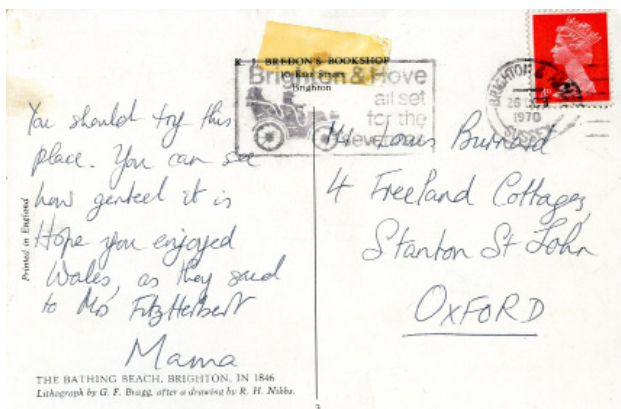 K. J. BREDON'S BOOKSHOP
10 East Street
Brighton
Brighton & Hove
all set
for the
BRIGHTON &
26
1970
SUSSEX
You should try this
place. You can see
how genteel it is
Hope you enjoyed
Wales, as they said
to Mrs FitzHerbert
Mama
Mr Louis Burnard
4 Freeland Cottages,
Stanton St John
OXFORD
Printed in England
THE BATHING BEACH, BRIGHTON, IN 1846
Lithograph by G. F. Bragg, after a drawing by R. H. Nibbs.
3